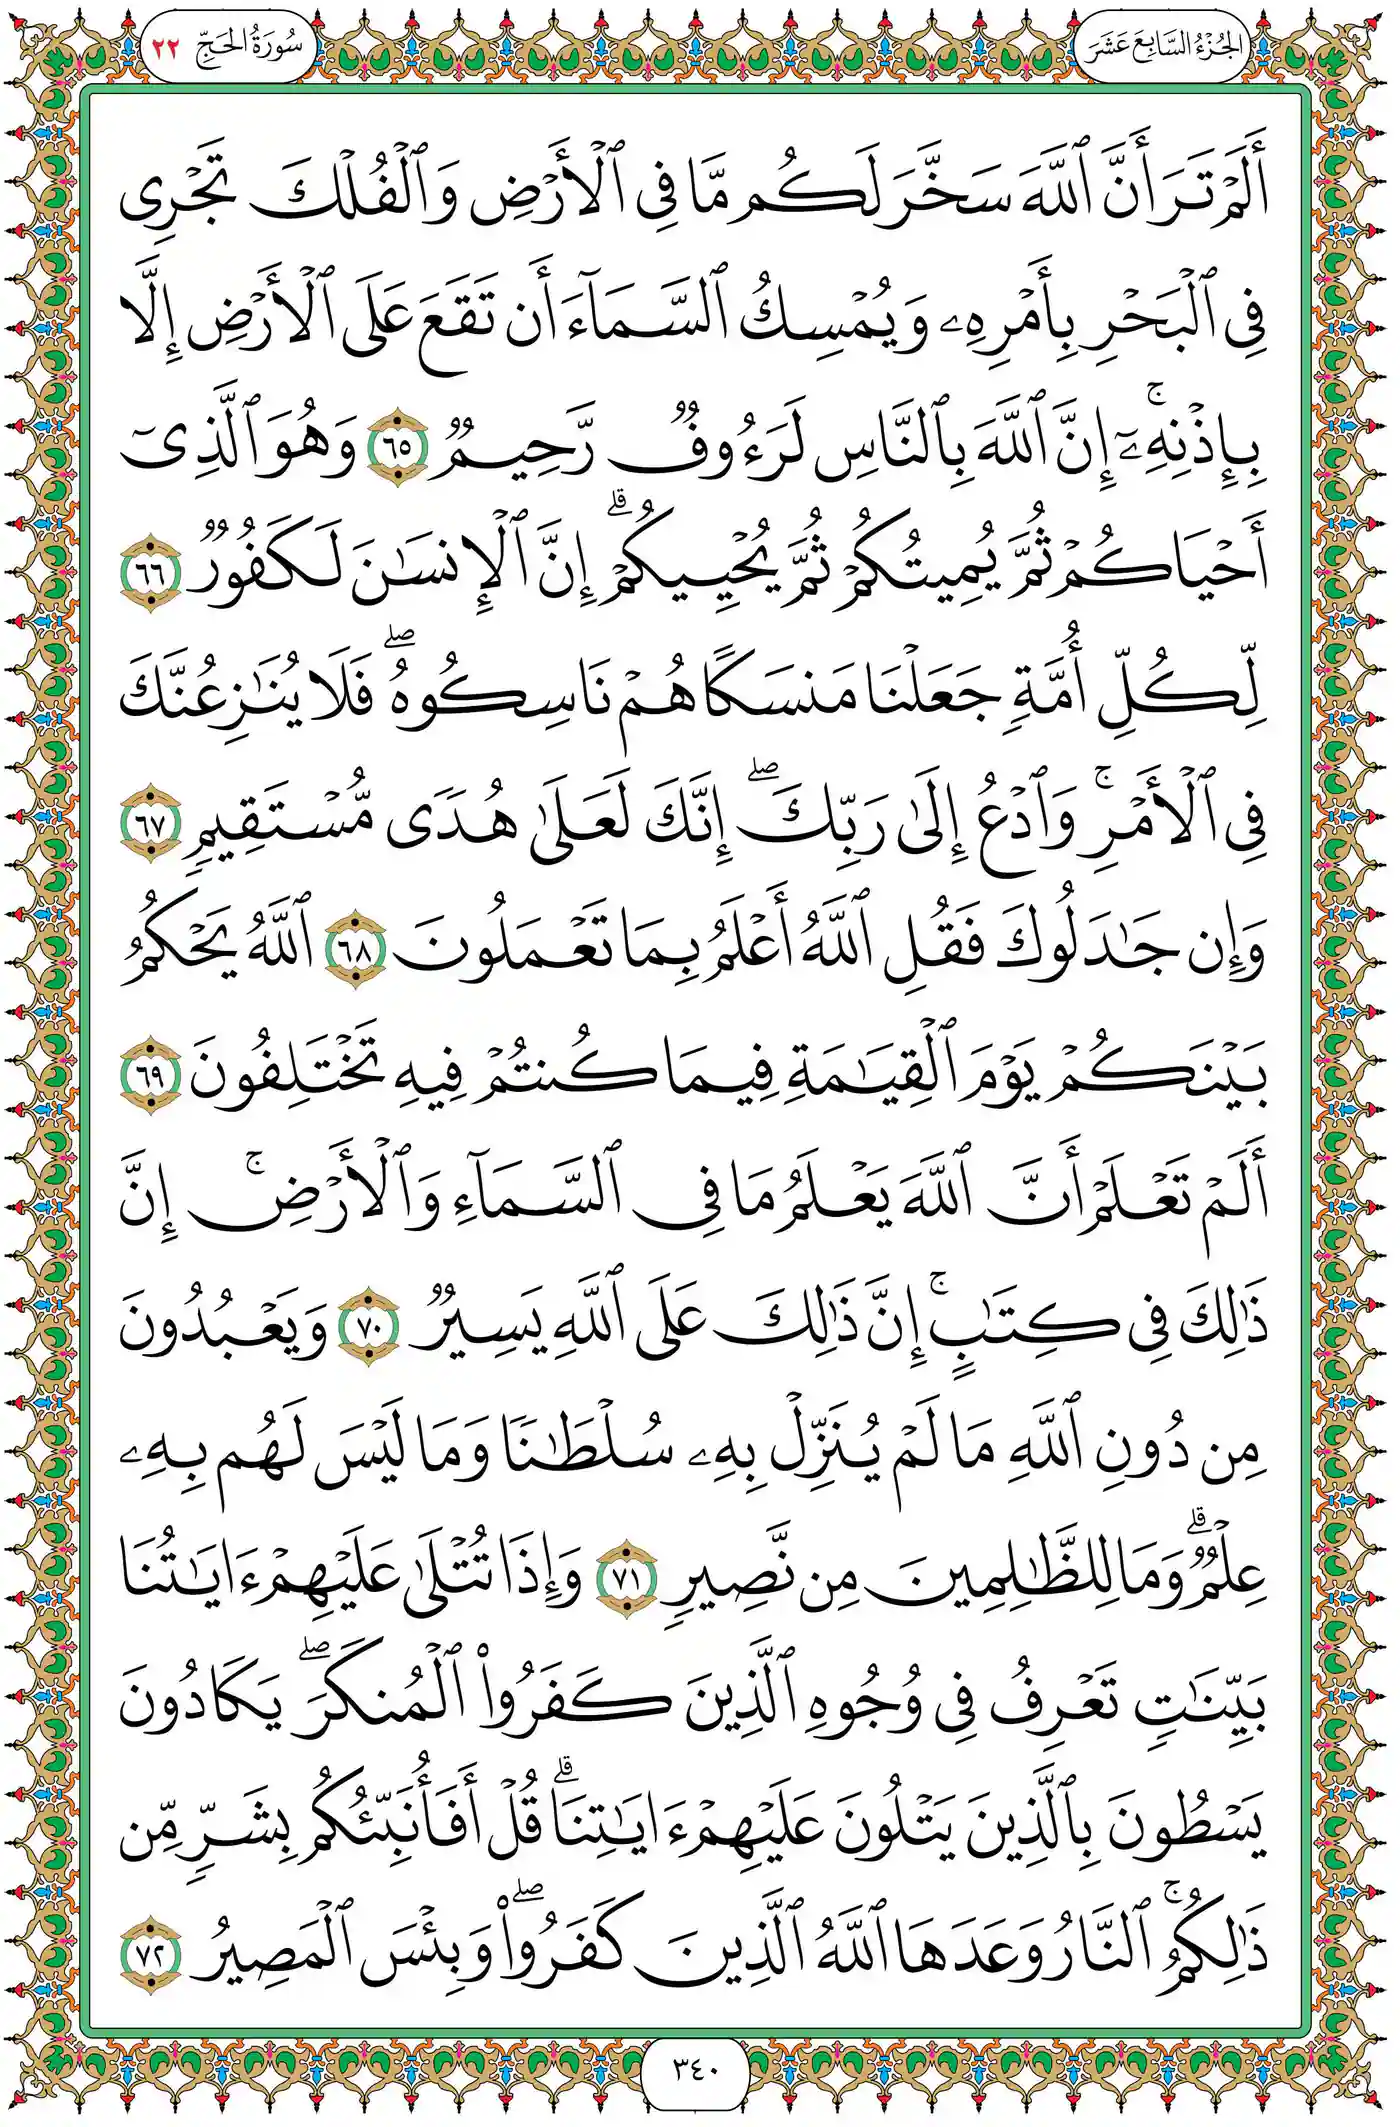 الجُزْءُ السَّابِعَ عَشَرَ
سُورَةُ الحَجِّ ٢٢
أَلَمْ تَرَ أَنَّ ٱللَّهَ سَخَّرَ لَكُم مَّا فِي ٱلْأَرْضِ وَٱلْفُلْكَ تَجْرِي
فِي ٱلْبَحْرِ بِأَمْرِهِۦ وَيُمْسِكُ ٱلسَّمَآءَ أَن تَقَعَ عَلَى ٱلْأَرْضِ إِلَّا
بِإِذْنِهِۦٓ ۚ إِنَّ ٱللَّهَ بِٱلنَّاسِ لَرَءُوفٌ رَّحِيمٌ ٦٥ وَهُوَ ٱلَّذِيٓ
أَحْيَاكُمْ ثُمَّ يُمِيتُكُمْ ثُمَّ يُحْيِيكُمْ ۗ إِنَّ ٱلْإِنسَٰنَ لَكَفُورٌ ٦٦
لِّكُلِّ أُمَّةٍ جَعَلْنَا مَنسَكًا هُمْ نَاسِكُوهُ ۖ فَلَا يُنَٰزِعُنَّكَ
فِي ٱلْأَمْرِ ۚ وَٱدْعُ إِلَىٰ رَبِّكَ ۖ إِنَّكَ لَعَلَىٰ هُدًى مُّسْتَقِيمٍ ٦٧
وَإِن جَٰدَلُوكَ فَقُلِ ٱللَّهُ أَعْلَمُ بِمَا تَعْمَلُونَ ٦٨ ٱللَّهُ يَحْكُمُ
بَيْنَكُمْ يَوْمَ ٱلْقِيَٰمَةِ فِيمَا كُنتُمْ فِيهِ تَخْتَلِفُونَ ٦٩
أَلَمْ تَعْلَمْ أَنَّ ٱللَّهَ يَعْلَمُ مَا فِي ٱلسَّمَآءِ وَٱلْأَرْضِ ۚ إِنَّ
ذَٰلِكَ فِي كِتَٰبٍ ۚ إِنَّ ذَٰلِكَ عَلَى ٱللَّهِ يَسِيرٌ ٧٠ وَيَعْبُدُونَ
مِن دُونِ ٱللَّهِ مَا لَمْ يُنَزِّلْ بِهِۦ سُلْطَٰنًا وَمَا لَيْسَ لَهُم بِهِۦ
عِلْمٌ ۗ وَمَا لِلظَّٰلِمِينَ مِن نَّصِيرٍ ٧١ وَإِذَا تُتْلَىٰ عَلَيْهِمْ ءَايَٰتُنَا
بَيِّنَٰتٍ تَعْرِفُ فِي وُجُوهِ ٱلَّذِينَ كَفَرُوا۟ ٱلْمُنكَرَ ۖ يَكَادُونَ
يَسْطُونَ بِٱلَّذِينَ يَتْلُونَ عَلَيْهِمْ ءَايَٰتِنَا ۗ قُلْ أَفَأُنَبِّئُكُم بِشَرٍّ مِّن
ذَٰلِكُمُ ۚ ٱلنَّارُ وَعَدَهَا ٱللَّهُ ٱلَّذِينَ كَفَرُوا۟ ۖ وَبِئْسَ ٱلْمَصِيرُ ٧٢
٣٤٠